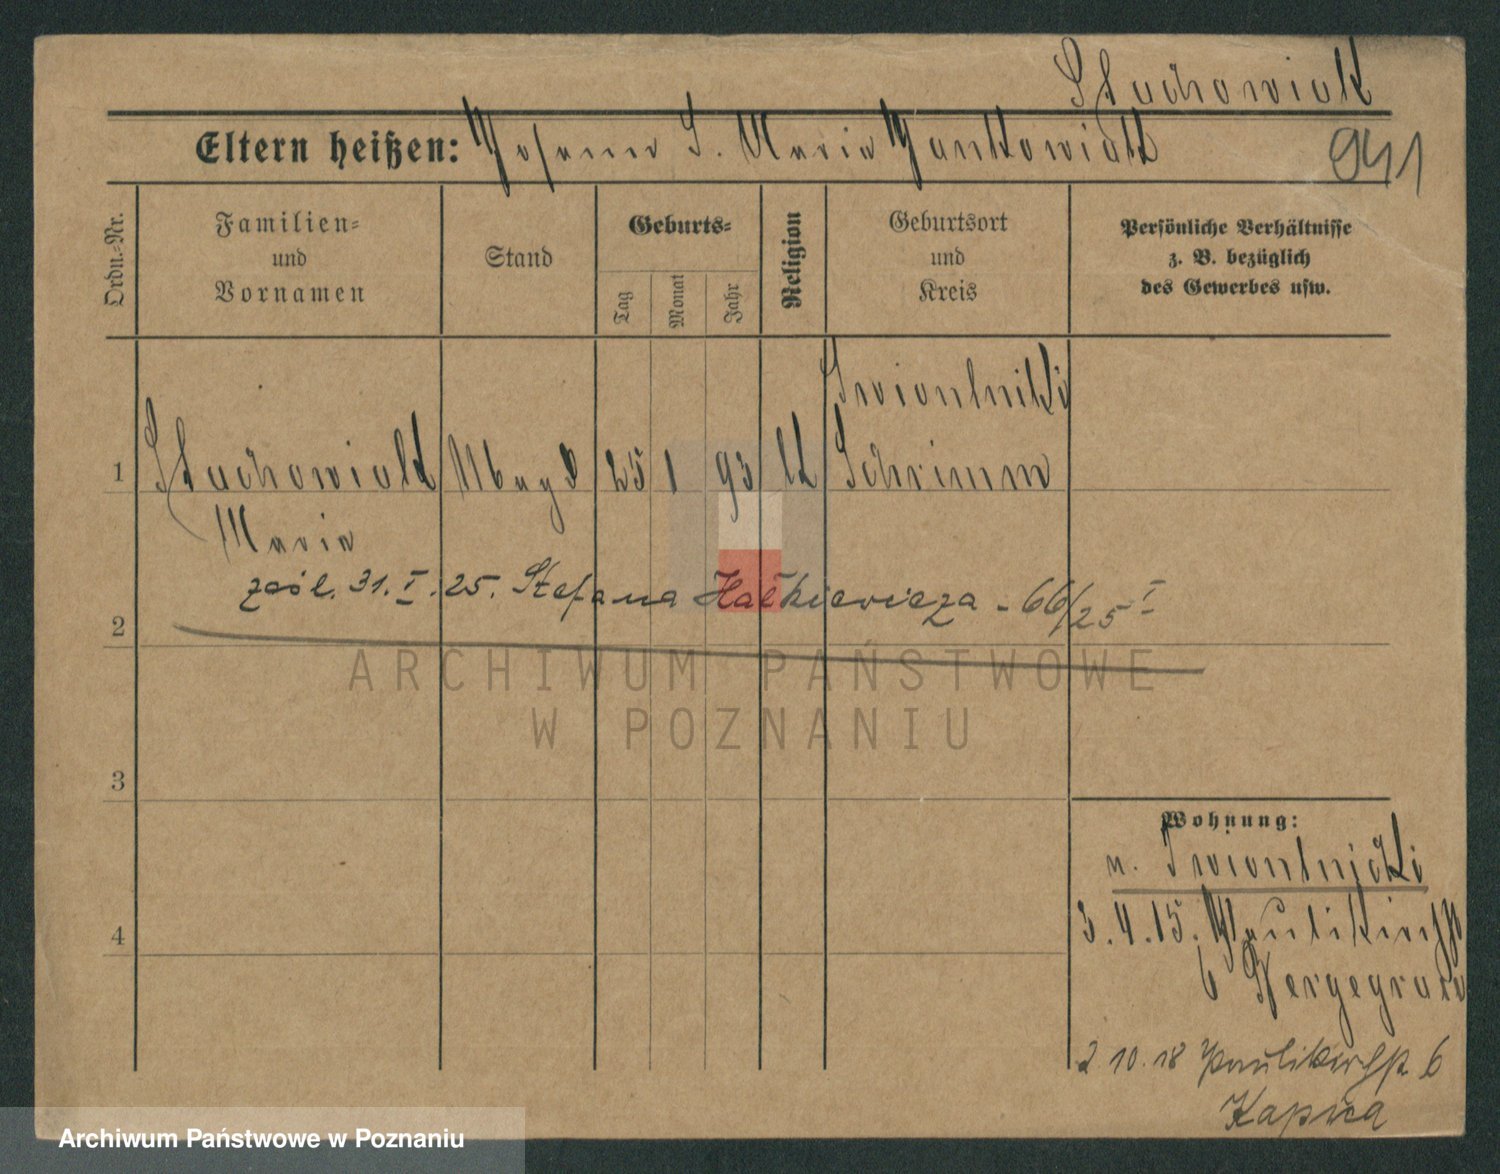 Stachowiak
Eltern heißen: Johann S. Maria Jankowiak
941
Ordn.-Nr.
Familien-
und
Vornamen
Stand
Geburts-
Tag
Monat
Jahr
Religion
Geburtsort
und
Kreis
Persönliche Verhältnisse
z. B. bezüglich
des Gewerbes usw.
Swiontniki
1 Stachowiak Magd 25 1 93 k Schrimm
Maria
zaśl. 31. I. 25. Stefana - 66/25 I
2
ARCHIWUM PAŃSTWOWE
W POZNANIU
3
Wohnung:
n. Swiontnicki
4
3.4.15. Paulikirchstr
6
2 10.18 Paulikirchstr. 6
Archiwum Państwowe w Poznaniu